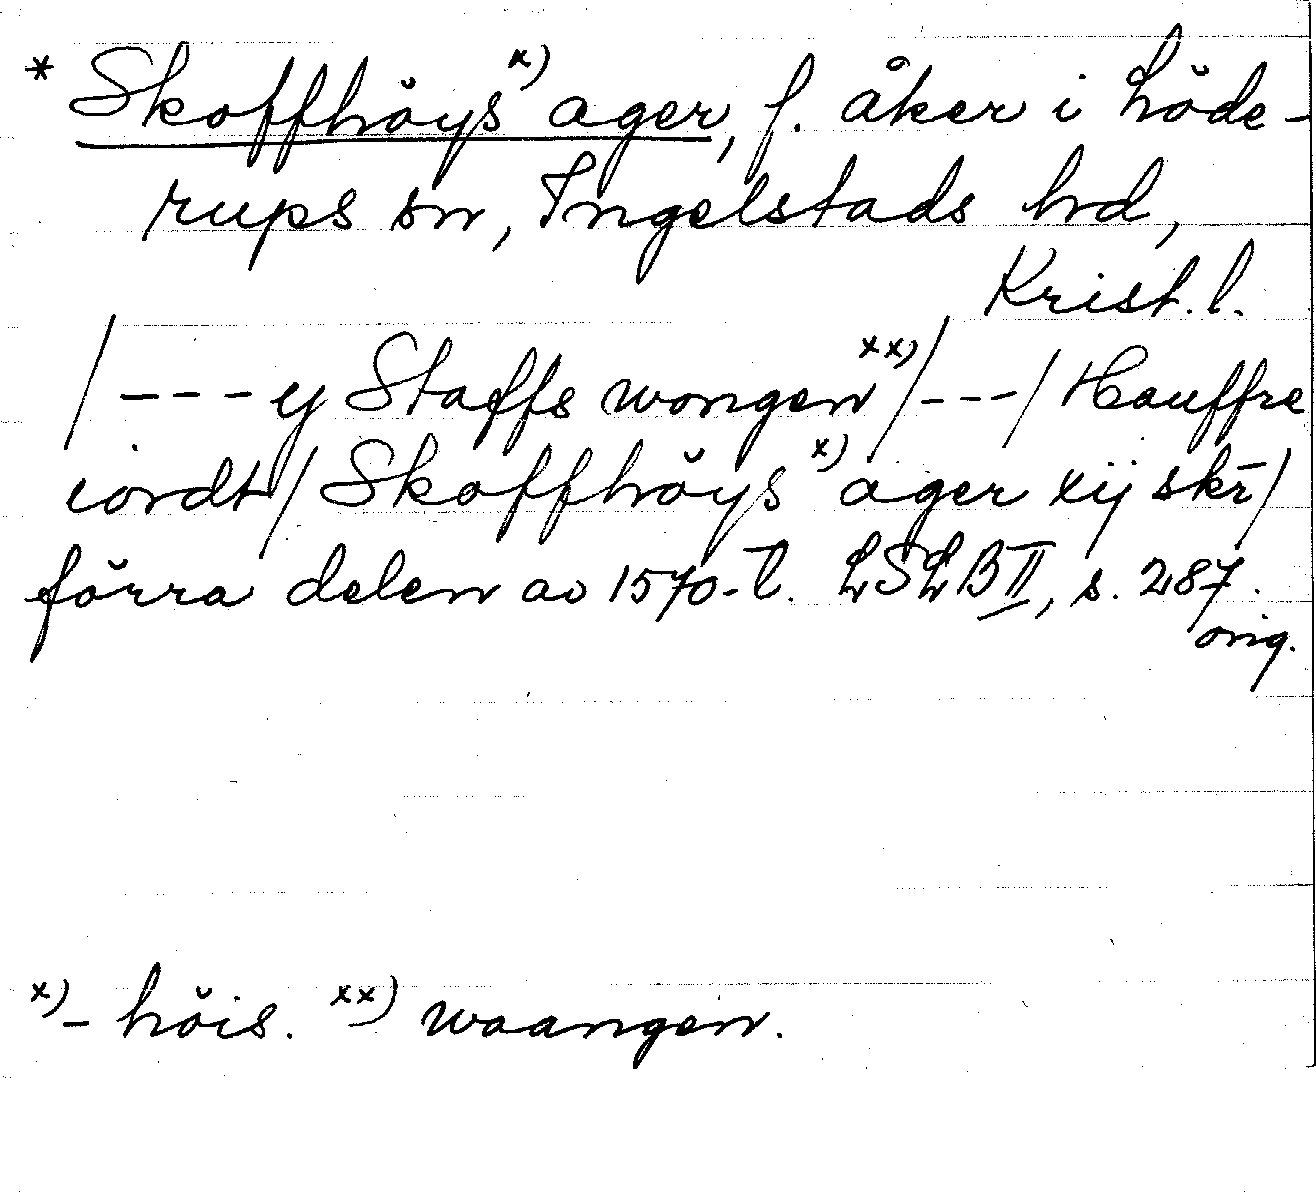 * Skoffhöys x) ager, f. åker i Löde-
rups sn, Ingelstads hd,
Krist. l.
/ - - - y Staffs wongen xx) / - - - / Hauffre
iordt / Skoffhöys x) ager xij skr̄ /
förra delen av 1570-t. LSLB II, s. 287.
orig.
x) - höis. xx) waangen.